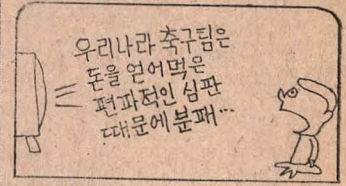 우리나라 축구팀은
돈을 얻어먹은
편파적인 심판
때문에 분패…